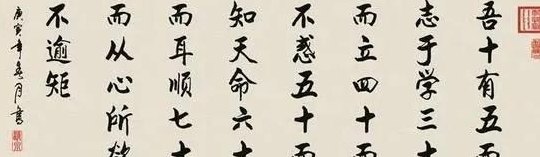 吾十有五而
志于学三十
而立四十而
不惑五十而
知天命六十
而耳顺七十
而从心所欲
不逾矩
庚寅年春月书